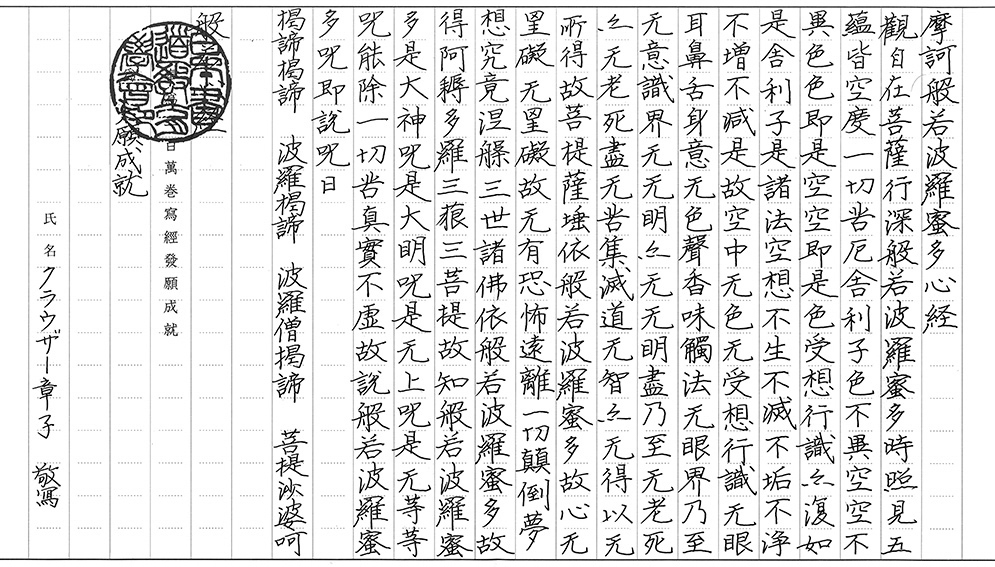 摩訶般若波羅蜜多心経
觀自在菩薩行深般若波羅蜜多時照見五
蘊皆空度一切苦厄舍利子色不異空空不
異色色即是空空即是色受想行識亦復如
是舍利子是諸法空想不生不滅不垢不浄
不增不減是故空中无色无受想行識无眼
耳鼻舌身意无色聲香味觸法无眼界乃至
无意識界无无明亦无无明盡乃至无老死
亦无老死盡无苦集滅道无智亦无得以无
所得故菩提薩埵依般若波羅蜜多故心无
罣礙无罣礙故无有恐怖遠離一切顛倒夢
想究竟涅槃三世諸佛依般若波羅蜜多故
得阿耨多羅三藐三菩提故知般若波羅蜜
多是大神呪是大明呪是无上呪是无等等
呪能除一切苦真實不虚故說般若波羅蜜
多呪即說呪曰
揭諦揭諦 波羅揭諦 波羅僧揭諦 菩提沙婆呵
般
百萬巻寫経發願成就
願成就
氏名 クラウザー章子 敬寫